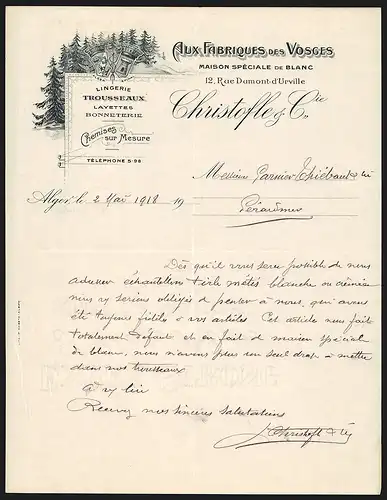 AUX FABRIQUES DES VOSGES
MAISON SPÉCIALE DE BLANC
12, Rue Dumont-d'Urville
Christofle & Cie
LINGERIE
TROUSSEAUX
LAYETTES
BONNETERIE
Chemises sur Mesure
TÉLÉPHONE 5-98
Messieurs Garnier Thiébaut & Cie
Gérardmer
Alger, le 2 Mai 1918 19
Dès qu'il vous sera possible de nous
adresser échantillons toile métis blanche ou crémée
nous vous serions obligés de penser à nous, qui avons
été toujours fidèles à vos articles. Cet article nous fait
totalement défaut et en fait de maison spéciale
de blanc, nous n'avons plus un seul drap à mettre
dans nos trousseaux.
Recevez nos sincères salutations
Christofle & Cie